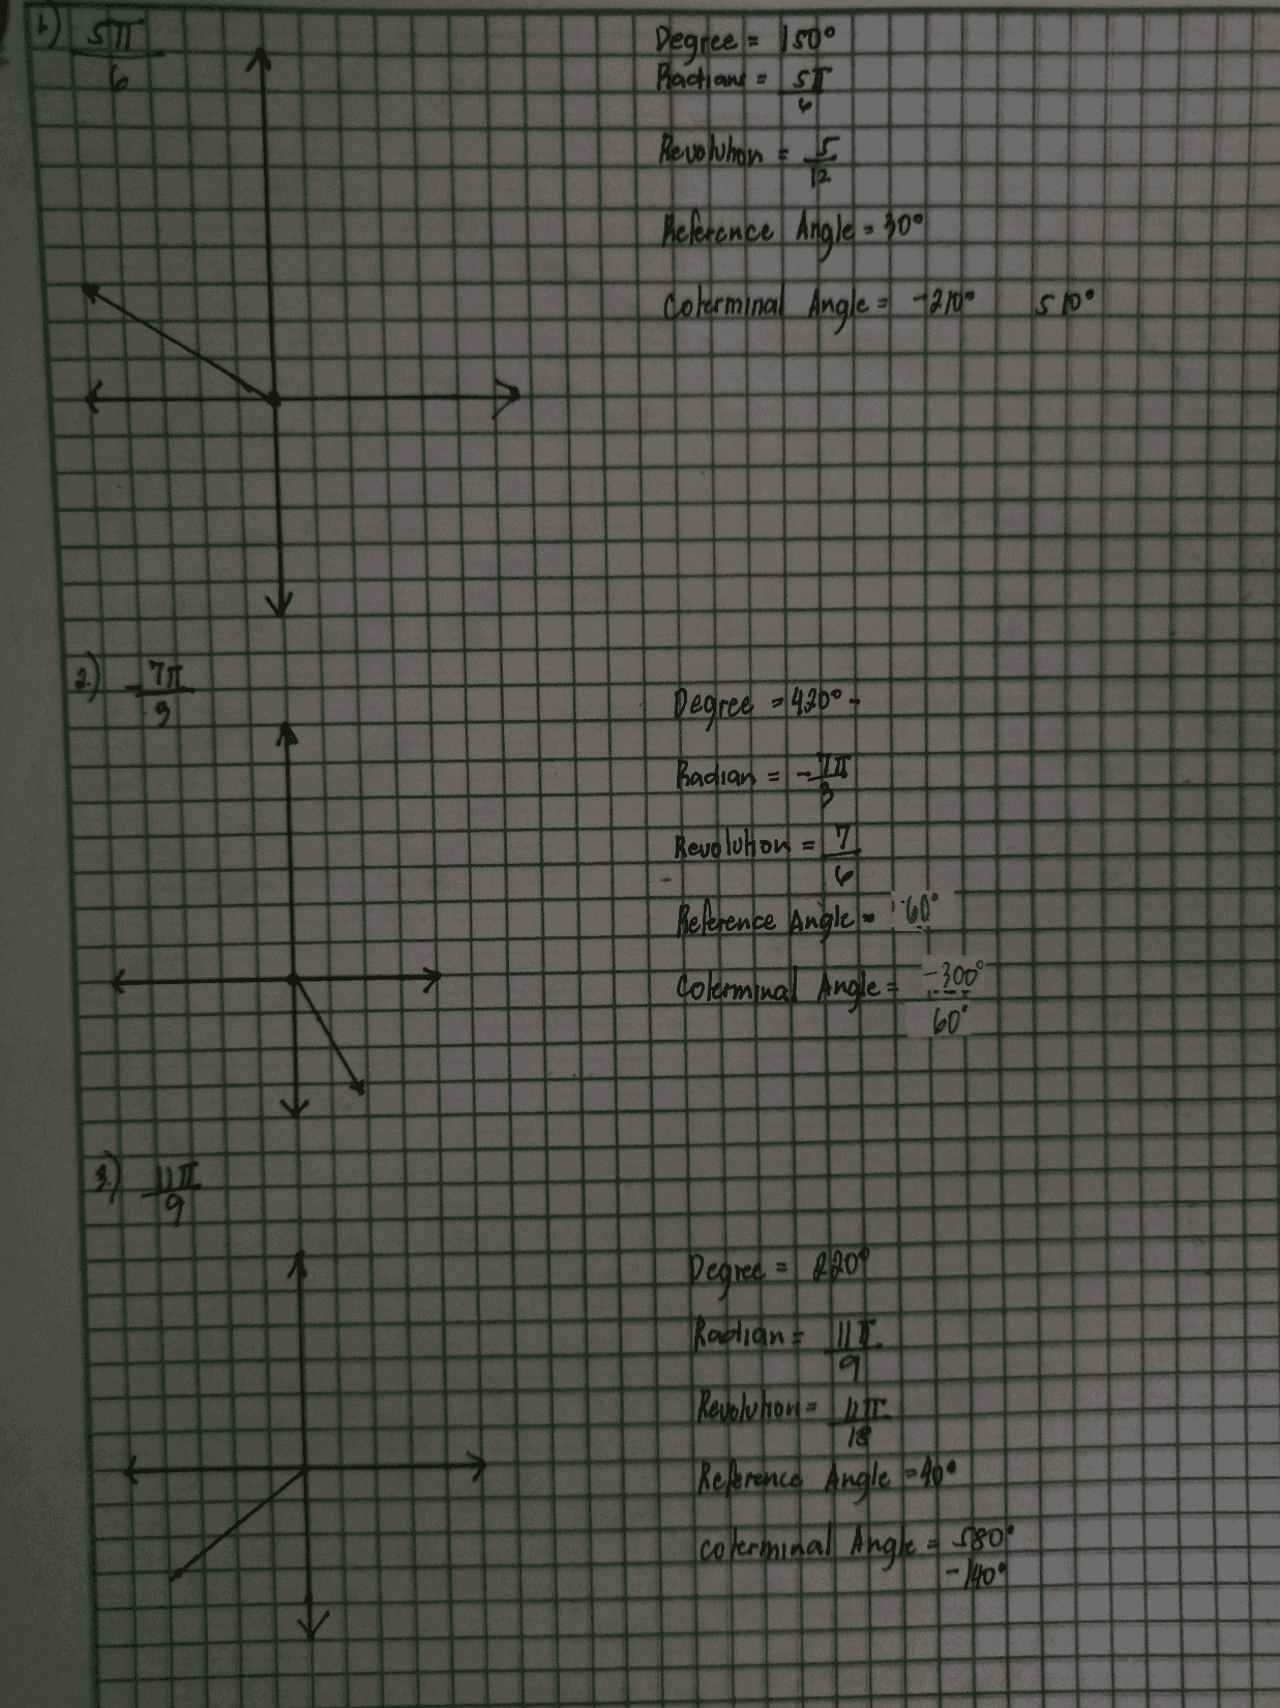 1.) 5π/6
Degree = 150°
Radians = 5π/6
Revolution = 5/12
Reference Angle = 30°
Coterminal Angle = -210° 510°
2.) -7π/9
Degree = 420° -
Radian = -7π/3
Revolution = 7/6
Reference Angle = 60°
Coterminal Angle = -300°
60°
3.) 11π/9
Degree = 220°
Radian = 11π/9
Revolution = 11π/18
Reference Angle = 40°
coterminal Angle = 580°
-140°